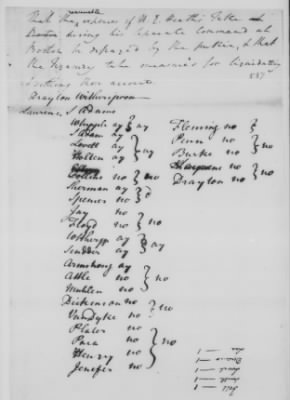 That the reasonable expences of W. E. Heath's Table
during his separate Command at
Boston be defrayed by the public, & that
the Treasury take measures for liquidating
& settling these accounts
587
Drayton Witherspoon
Laurens, S Adams
Whipple ay } ay
S Adam ay
Lovett ay } ay
Hollen ay
Collins no } no
Sherman ay
Spencer no
Jay no
Floyd no } no
ay
Scudder ay } ay
Armstrong ay
Attle no } no
Muhlen no
Dickinson no } no
VanDyke no
Plater no
Paca no } no
Henry no
Jenifer no
Fleming no
Penn no } no
Burke no
Drayton no } no